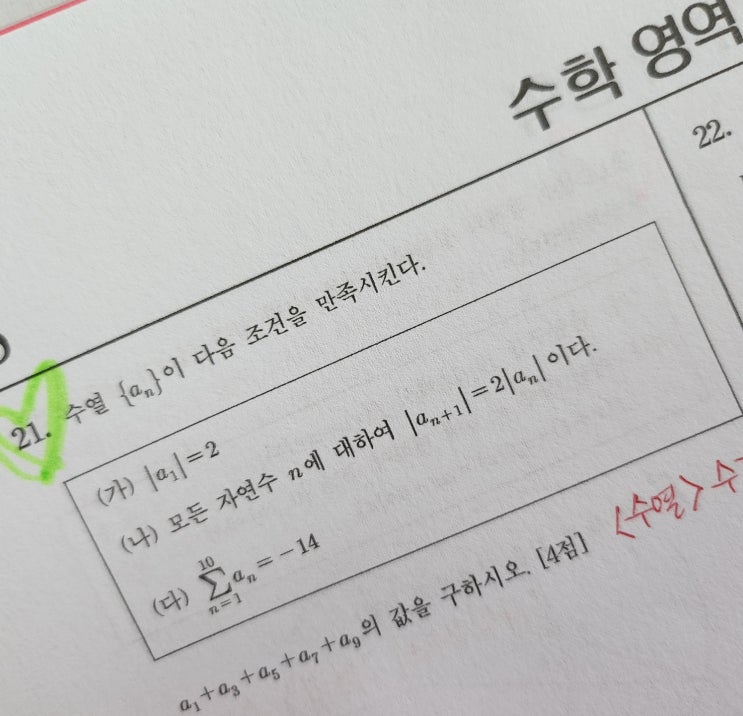 수학 영역
22.
21. 수열 {aₙ}이 다음 조건을 만족시킨다.
(가) |a₁|=2
(나) 모든 자연수 n에 대하여 |aₙ₊₁|=2|aₙ|이다.
(다) ∑ₙ₌₁¹⁰ aₙ=−14
a₁+a₃+a₅+a₇+a₉의 값을 구하시오. [4점]
<수열>